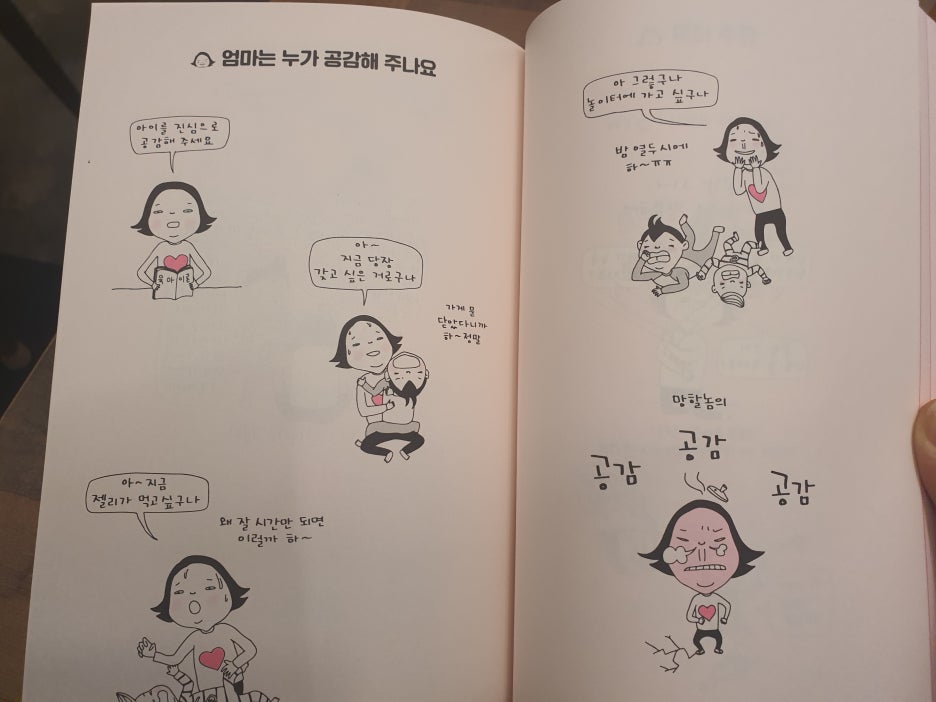 엄마는 누가 공감해 주나요
아이를 진심으로
공감해 주세요
육아이론
아~
지금 당장
갖고 싶은 거로구나
가게 문
닫았다니까
하~정말
아~지금
젤리가 먹고싶구나
왜 잘 시간만 되면
이럴까 하~
아 그렇구나
놀이터에 가고 싶구나
밤 열두시에
하~ㅠㅠ
망할놈의
공감
공감
공감